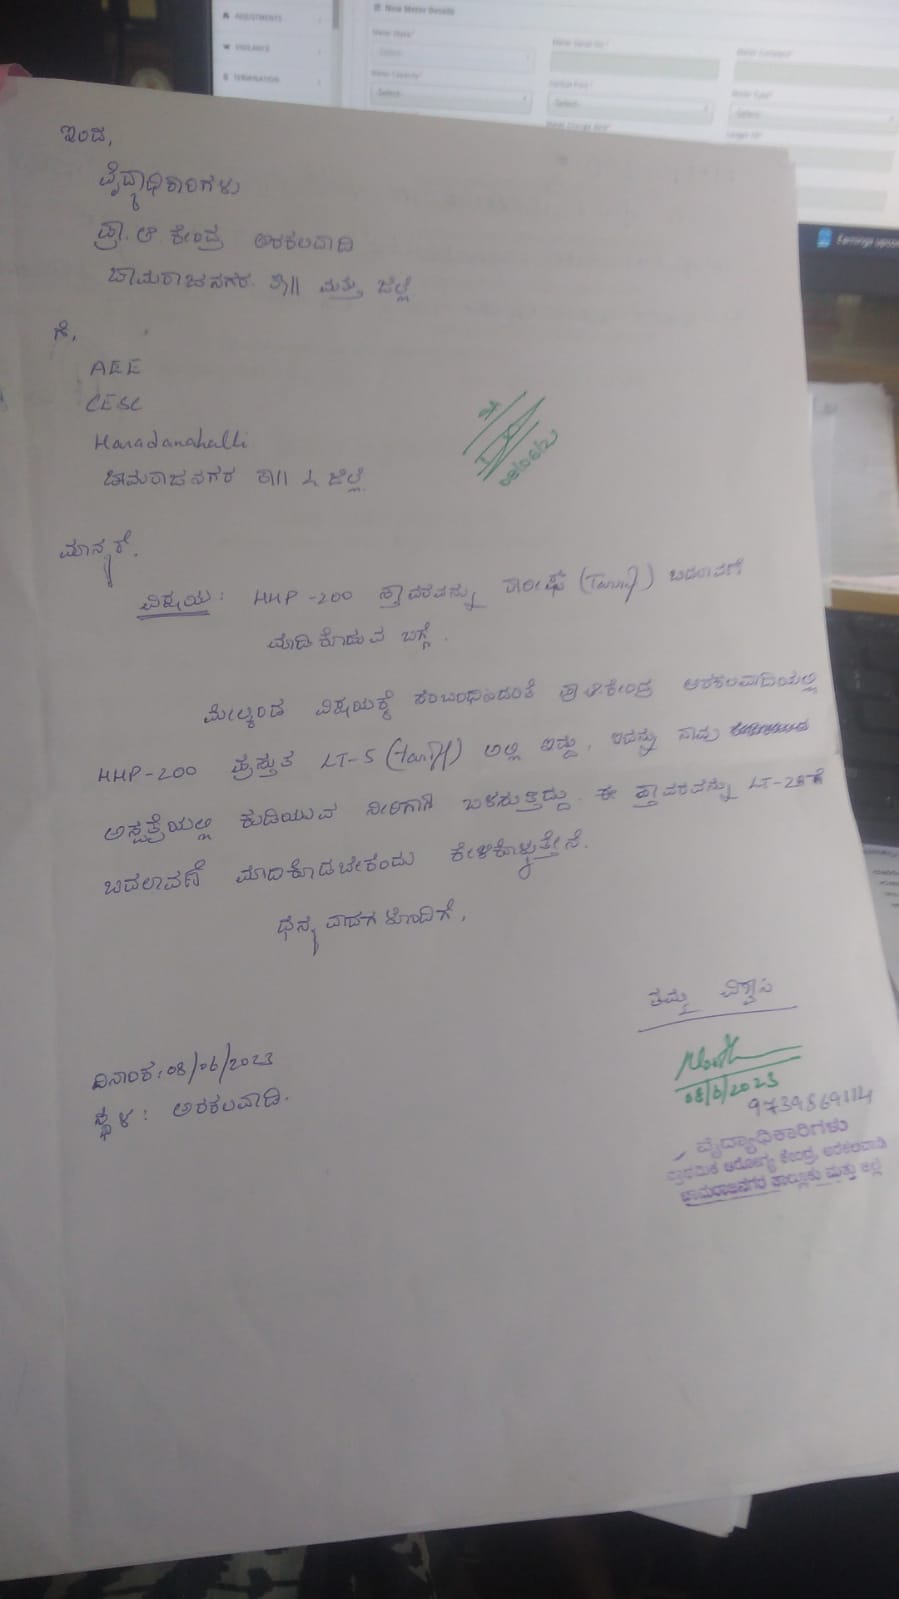 ADJUSTMENTS
VIGILANCE
TERMINATION
New Meter Details
Meter Make*
Meter Serial No*
Meter Constant*
Meter Capacity*
Meter Type*
-Select-
-Select-
-Select-
ಇಂದ,
ವೈದ್ಯಾಧಿಕಾರಿಗಳು
ಪ್ರಾ.ಆ.ಕೇಂದ್ರ ಅರಕಲವಾಡಿ
ಚಾಮರಾಜನಗರ ತಾ|| ಮತ್ತು ಜಿಲ್ಲೆ
ಗೆ,
AEE
CESC
Haradanahalli
ಚಾಮರಾಜನಗರ ತಾ|| & ಜಿಲ್ಲೆ.
ಮಾನ್ಯರೆ.
ವಿಷಯ: HHP-200 ಸ್ಥಾವರವನ್ನು ತಾರೀಫ್ (Tariff) ಬದಲಾವಣೆ
ಮಾಡಿಕೊಡುವ ಬಗ್ಗೆ.
ಮೇಲ್ಕಂಡ ವಿಷಯಕ್ಕೆ ಸಂಬಂಧಿಸಿದಂತೆ ಪ್ರಾ.ಆ.ಕೇಂದ್ರ ಅರಕಲವಾಡಿಯಲ್ಲಿ
HHP-200 ಪ್ರಸ್ತುತ LT-5 (tariff) ಅಲ್ಲಿ ಇದ್ದು, ಇದನ್ನು ನಾವು
ಆಸ್ಪತ್ರೆಯಲ್ಲಿ ಕುಡಿಯುವ ನೀರಿಗಾಗಿ ಬಳಸುತ್ತಿದ್ದು. ಈ ಸ್ಥಾವರವನ್ನು
ಬದಲಾವಣೆ ಮಾಡಿಕೊಡಬೇಕೆಂದು ಕೇಳಿಕೊಳ್ಳುತ್ತೇನೆ.
ಧನ್ಯವಾದಗಳೊಂದಿಗೆ,
ತಮ್ಮ ವಿಶ್ವಾಸಿ
08/6/2023
9739869114
ದಿನಾಂಕ:08/06/2023
ಸ್ಥಳ: ಅರಕಲವಾಡಿ.
ವೈದ್ಯಾಧಿಕಾರಿಗಳು
ಪ್ರಾಥಮಿಕ ಆರೋಗ್ಯ ಕೇಂದ್ರ, ಅರಕಲವಾಡಿ
ಚಾಮರಾಜನಗರ ತಾಲ್ಲೂಕು ಮತ್ತು ಜಿಲ್ಲೆ